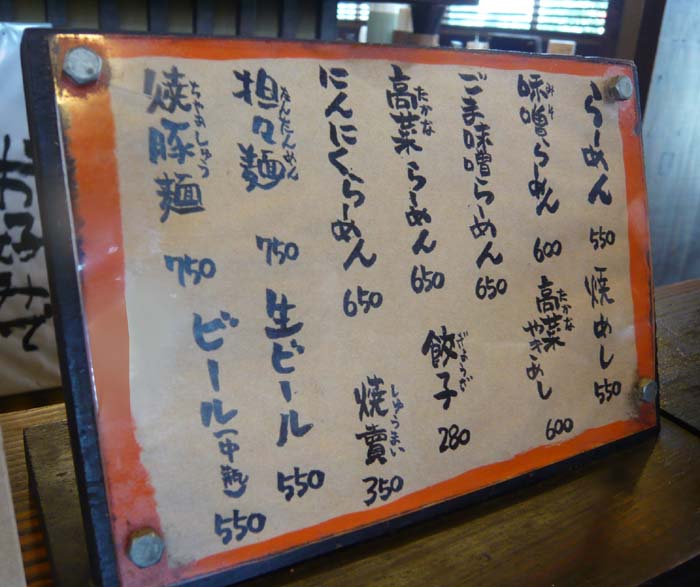 らーめん 550
味噌らーめん 600
みそ
ごま味噌らーめん 650
高菜らーめん 650
たかな
にんにくらーめん 650
担々麺 750
たんたんめん
焼豚麺 750
焼めし 550
高菜やきめし 600
たかな
餃子 280
焼賣 350
しゅうまい
生ビール 550
ビール(中瓶) 550